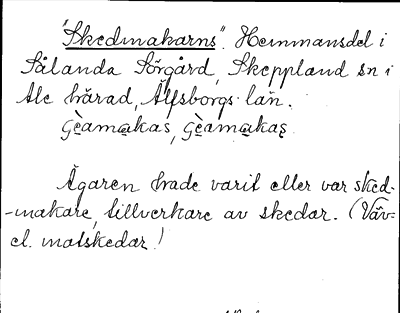 "Skedmakarns". Hemmansdel i
Sålanda Sörgård, Skeppland sn i
Ale härad, Älfsborgs län.
Gèamakas, Gèamakas

Ägaren hade varit eller var sked-
-makare, tillverkare av skedar. (Väv-
el. matskedar!